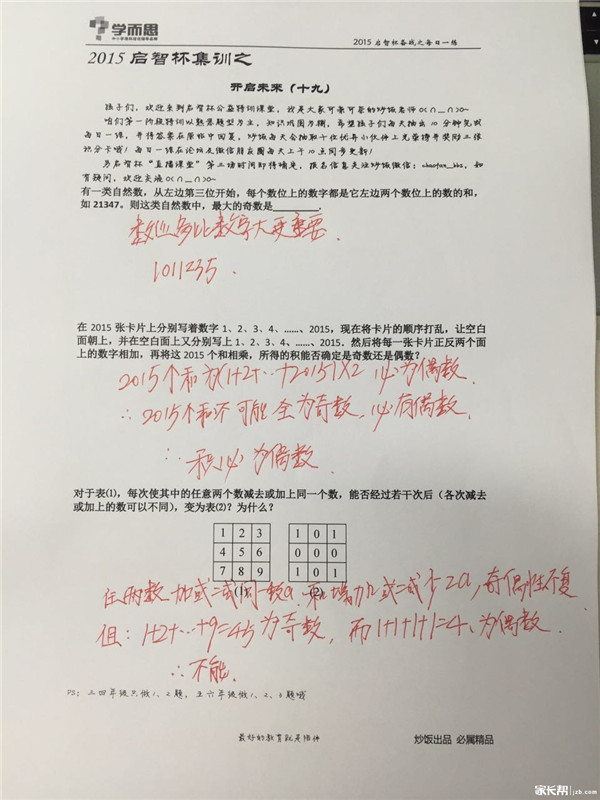 学而思
中小学理科培优领军品牌
2015启智杯备战之每日一练
2015启智杯集训之
开启未来（十九）
孩子们，欢迎来到启智杯公益特训课堂，我是大家可亲可爱的炒饭老师
咱们第一阶段特训以熟悉题型为主，知识巩固为辅，希望孩子们每天抽出10分钟完成
每日一练，并将答案在原帖中回复，炒饭每天会抽取十位优秀小伙伴上光荣榜并奖励三张
积分卡哦！每日一练在论坛及微信朋友圈每天上午10点同步更新！
另启智杯“直播课堂”第三场时间即将确定，报名信息关注炒饭微信：chaofan_bbs，如
有疑问，欢迎交流
有一类自然数，从左边第三位开始，每个数位上的数字都是它左边两个数位上的数的和，
如21347。则这类自然数中，最大的奇数是________.
数位多比数字大更重要.
1011235.
在2015张卡片上分别写着数字1、2、3、4、……、2015，现在将卡片的顺序打乱，让空白
面朝上，并在空白面上又分别写上1、2、3、4、……、2015．然后将每一张卡片正反两个面
上的数字相加，再将这2015个和相乘，所得的积能否确定是奇数还是偶数？
2015个和为(1+2+…+2015)×2 必为偶数.
∴2015个和不可能全为奇数,必有偶数.
∴积必为偶数.
对于表⑴，每次使其中的任意两个数减去或加上同一个数，能否经过若干次后（各次减去
或加上的数可以不同），变为表⑵？为什么？
1 2 3 1 0 1
4 5 6 0 0 0
7 8 9 1 0 1
(1) (2)
任两数加或减同一数a.和增加或减少2a,奇偶性不变
但:1+2+…+9=45为奇数,而1+1+1+1=4.为偶数.
∴不能.
PS：三四年级只做1、2题，五六年级做1、2、3题哦
最好的教育就是陪伴
炒饭出品 必属精品
家长帮
jzb.com